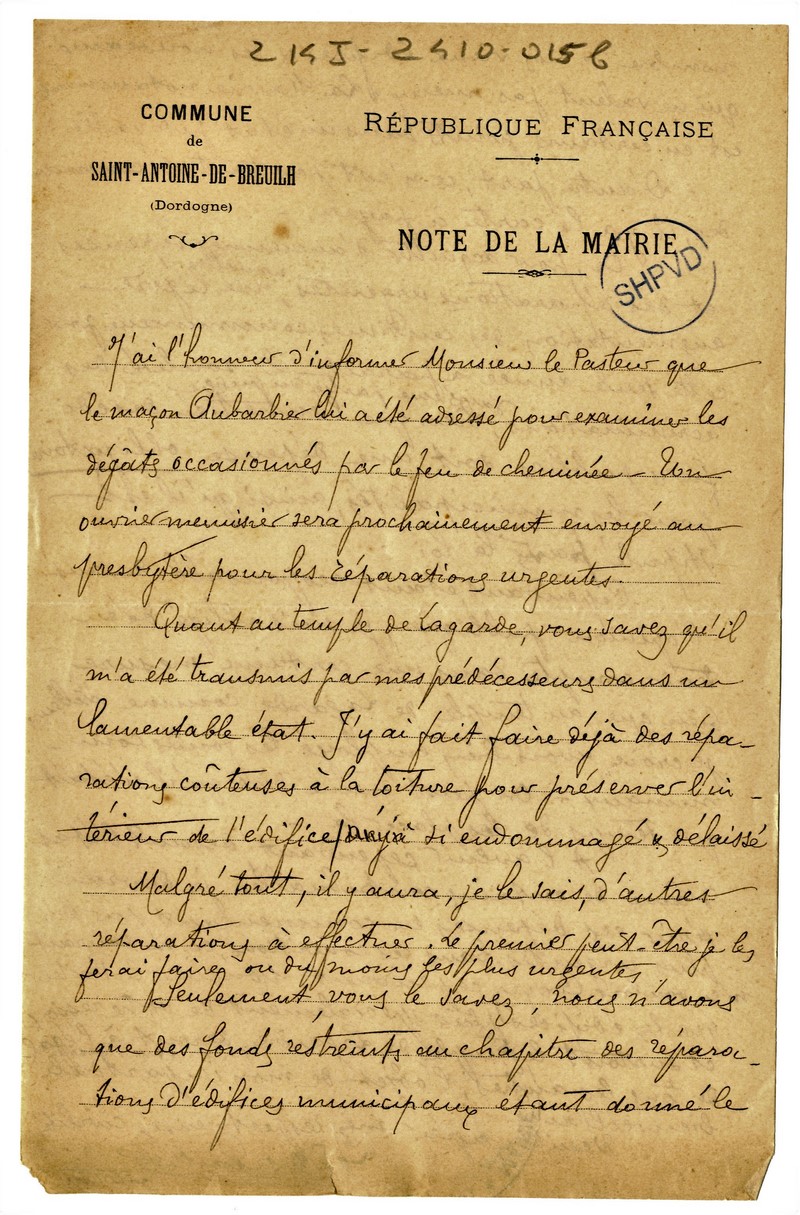 2 K J - 2410-015 b
COMMUNE
de
SAINT-ANTOINE-DE-BREUILH
(Dordogne)
RÉPUBLIQUE FRANÇAISE
NOTE DE LA MAIRIE
SHPVD
J'ai l'honneur d'informer Monsieur le Pasteur que
le maçon Aubarbier lui a été adressé pour examiner les
dégâts occasionnés par le feu de cheminée - Un
ouvrier menuisier sera prochainement envoyé au
presbytère pour les réparations urgentes.
Quant au temple de Lagarde, vous savez qu'il
m'a été transmis par mes prédécesseurs dans un
lamentable état. J'y ai fait faire déjà des répa-
rations coûteuses à la toiture pour préserver l'in-
térieur de l'édifice déjà si endommagé & délaissé
Malgré tout, il y aura, je le sais, d'autres
réparations à effectuer. Le premier peut-être je les
ferai faire ou du moins les plus urgentes.
Seulement, vous le savez, nous n'avons
que des fonds restreints au chapitre des répara-
tions d'édifices municipaux étant donné le